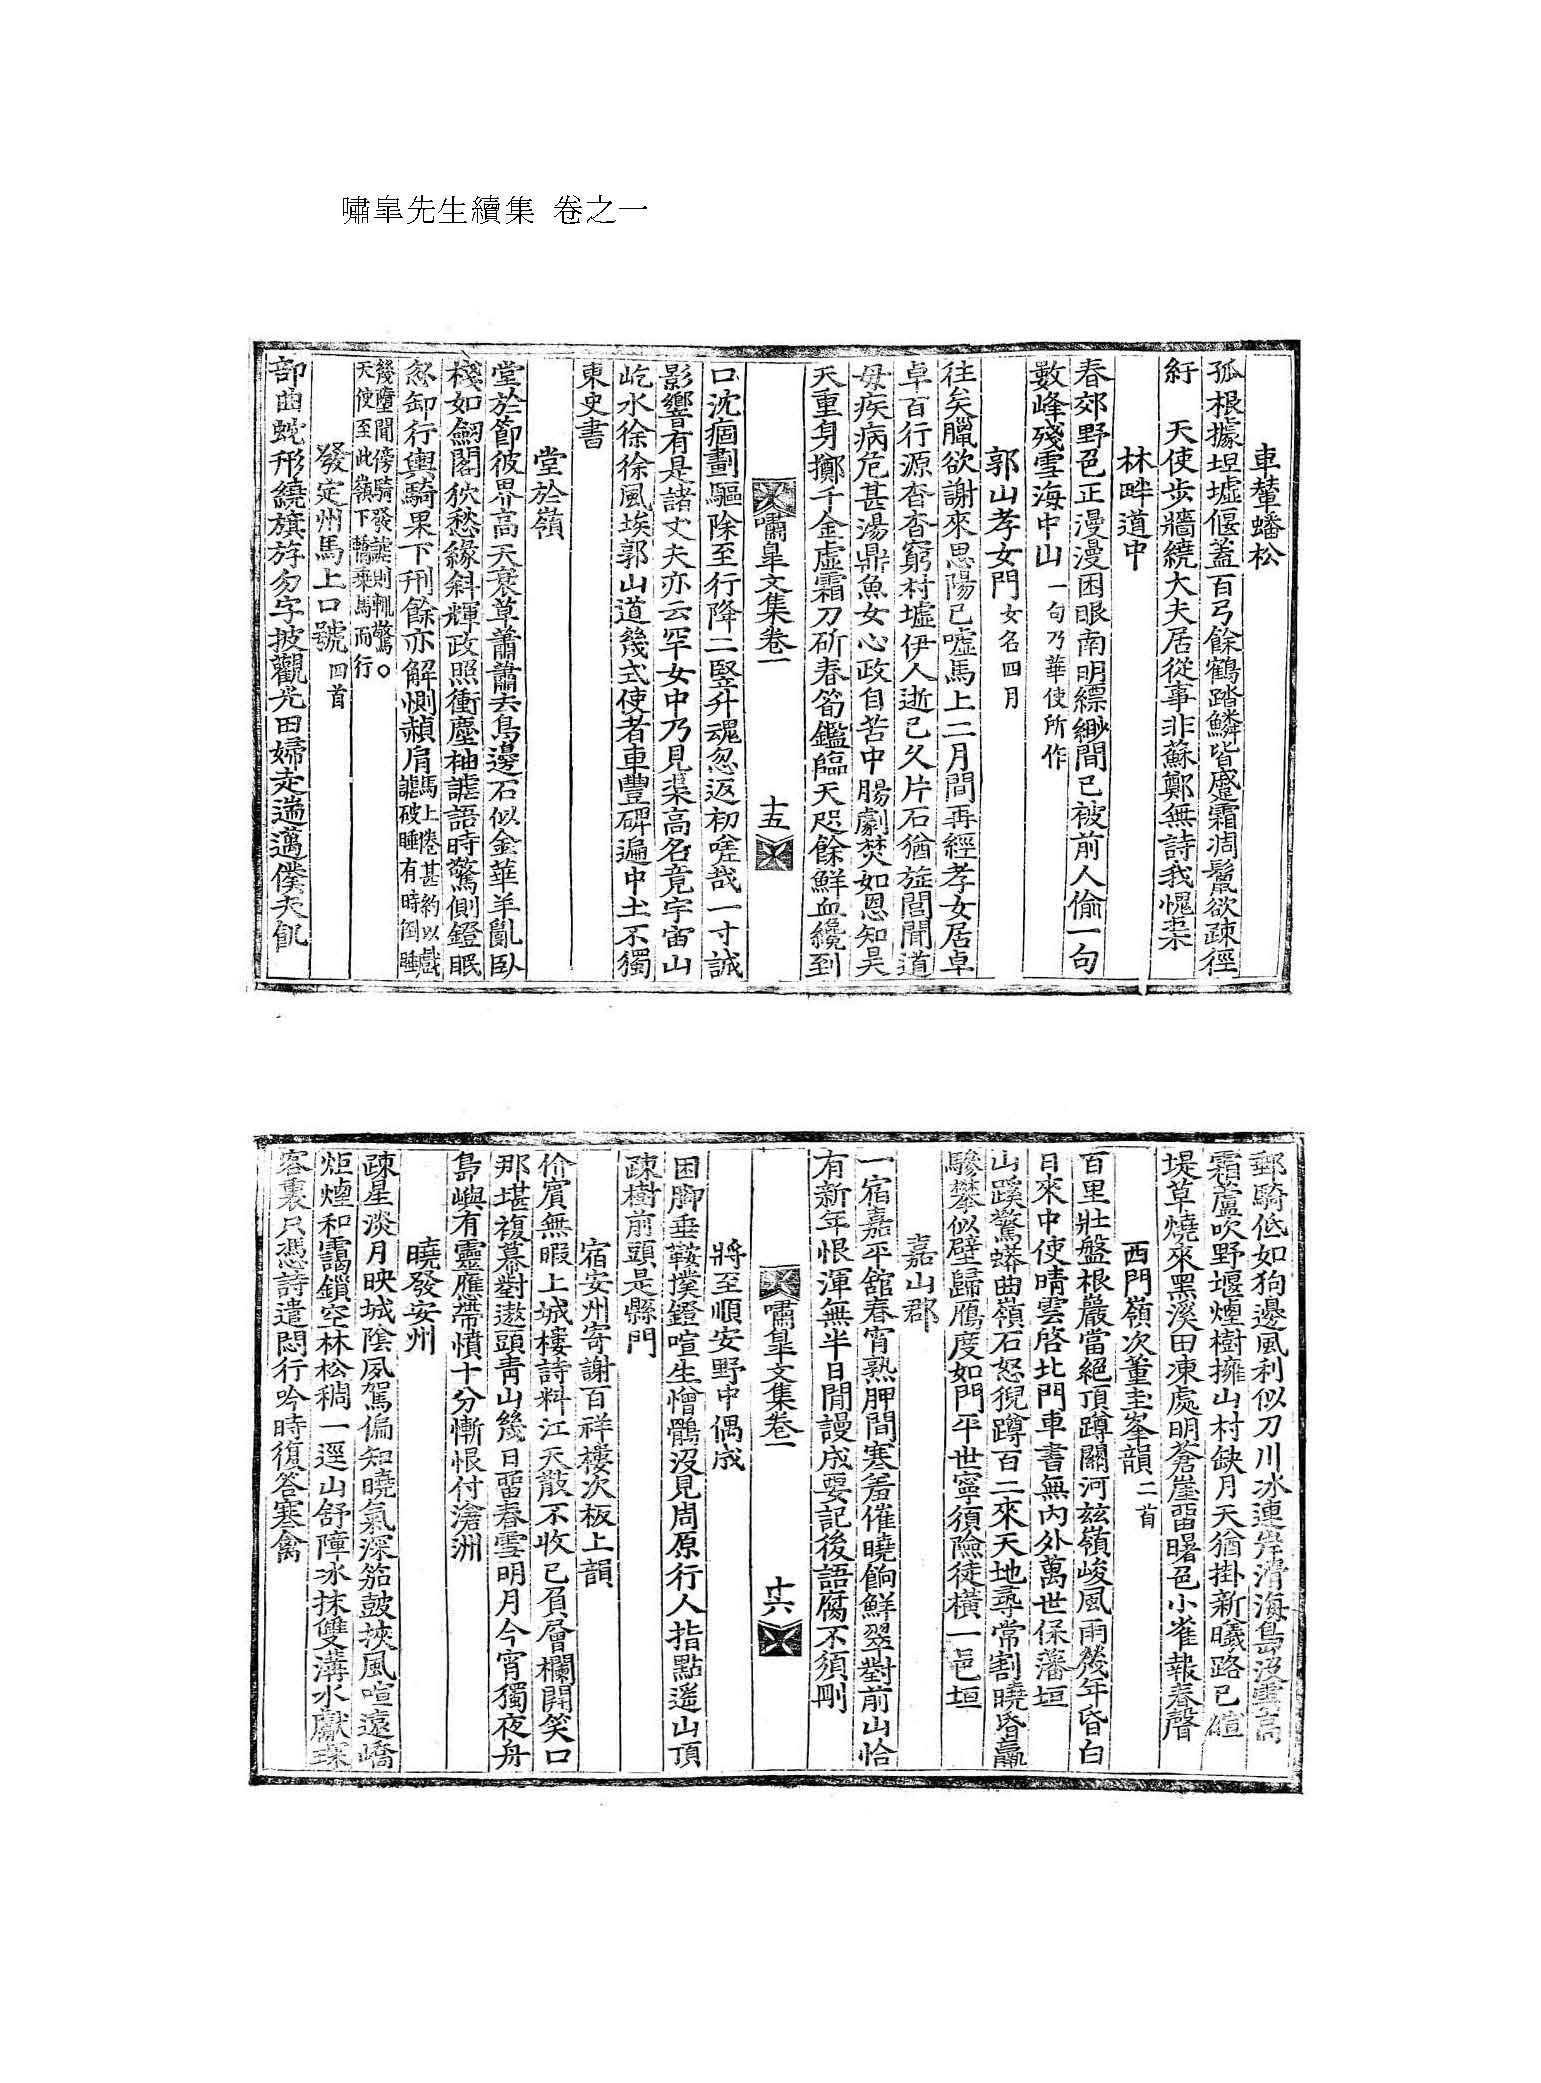 嘯皐先生續集 卷之一
車輦蟠松
孤根據坦墟偃蓋百弓餘鶴踏鱗皆蹙霜凋鬣欲疎徑
紆 天使步牆繞大夫居從事非蘇鄭無詩我愧渠
林畔道中
春郊野色正漫漫困眼南明縹緲間已被前人偷一句
數峰殘雪海中山 一句乃華使所作
郭山孝女門 女名四月
往矣臘欲謝來思陽已噓馬上二月間再經孝女居卓
卓百行源杳杳窮村墟伊人逝已久片石猶旌閭聞道
母疾病危甚湯鼎魚女心政自苦中腸劇焚如恩知昊
天重身擲千金虛霜刀斫春筍鑑臨天咫餘鮮血纔到
嘯皐文集卷一
十五
口沈痼劃驅除至行降二竪升魂忽返初嗟哉一寸誠
影響有是諸丈夫亦云罕女中乃見渠高名竟宇宙山
屹水徐徐風埃郭山道幾式使者車豐碑遍中土不獨
東史書
堂於嶺
堂於節彼界高天衰草蕭蕭去鳥邊石似金華羊亂臥
棧如劒閣狖愁緣斜輝政照衝塵袖謔語時驚側鐙眠
忽卸行輿騎果下刑餘亦解惻頳肩 馬上倦甚約以戲謔破睡有時倒睡
幾墮聞傍騎發謔則輒驚○天使至此嶺下轎乘馬而行
發定州馬上口號 四首
部曲蛇形繞旗斿勿字披觀光田婦走遄邁僕夫飢
郵騎低如狗邊風利似刀川冰連岸滑海島沒雲高
霜蘆吹野堰煙樹擁山村缺月天猶掛新曦路已暄
堤草燒來黑溪田凍處明蒼崖留曙色小雀報春聲
西門嶺次董圭峯韻 二首
百里壯盤根嚴當絕頂蹲關河玆嶺峻風雨幾年昏白
日來中使晴雲啓北門車書無內外萬世保藩垣
山蹊驚蟒曲嶺石怒猊蹲百二來天地尋常割曉昏羸
驂攀似壁歸鴈度如門平世寧須險徒橫一邑垣
嘉山郡
一宿嘉平舘春宵熟胛間寒羞催曉餉鮮翠對前山恰
有新年恨渾無半日閒謾成要記後語腐不須刪
嘯皐文集卷一
十六
將至順安野中偶成
困脚垂鞍撲鐙喧生憎鶻沒見周原行人指點遙山頂
疎樹前頭是縣門
宿安州寄謝百祥樓次板上韻
价賓無暇上城樓詩料江天散不收已負層欄開笑口
那堪複幕對遨頭靑山幾日留春雪明月今宵獨夜舟
島嶼有靈應帶憤十分慚恨付滄洲
曉發安州
疎星淡月映城陰夙駕偏知曉氣深笳鼓挾風喧遠嶠
炬煙和靄鎖空林松稠一逕山舒障冰抹雙溝水獻琛
客裏只憑詩遣悶行吟時復答寒禽